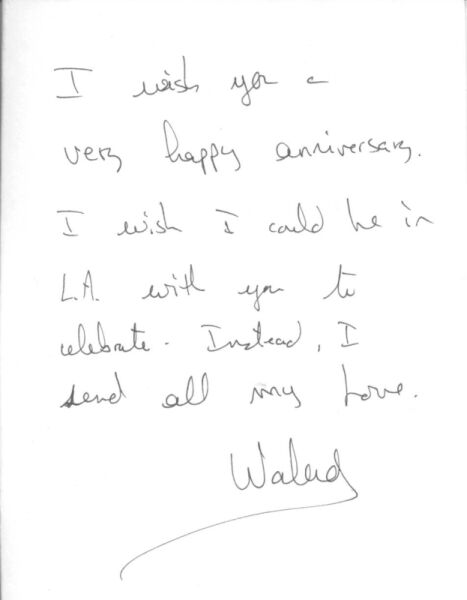 I wish you a
very happy anniversary.
I wish I could be in
L.A. with you to
celebrate. Instead, I
send all my love.
Waleed